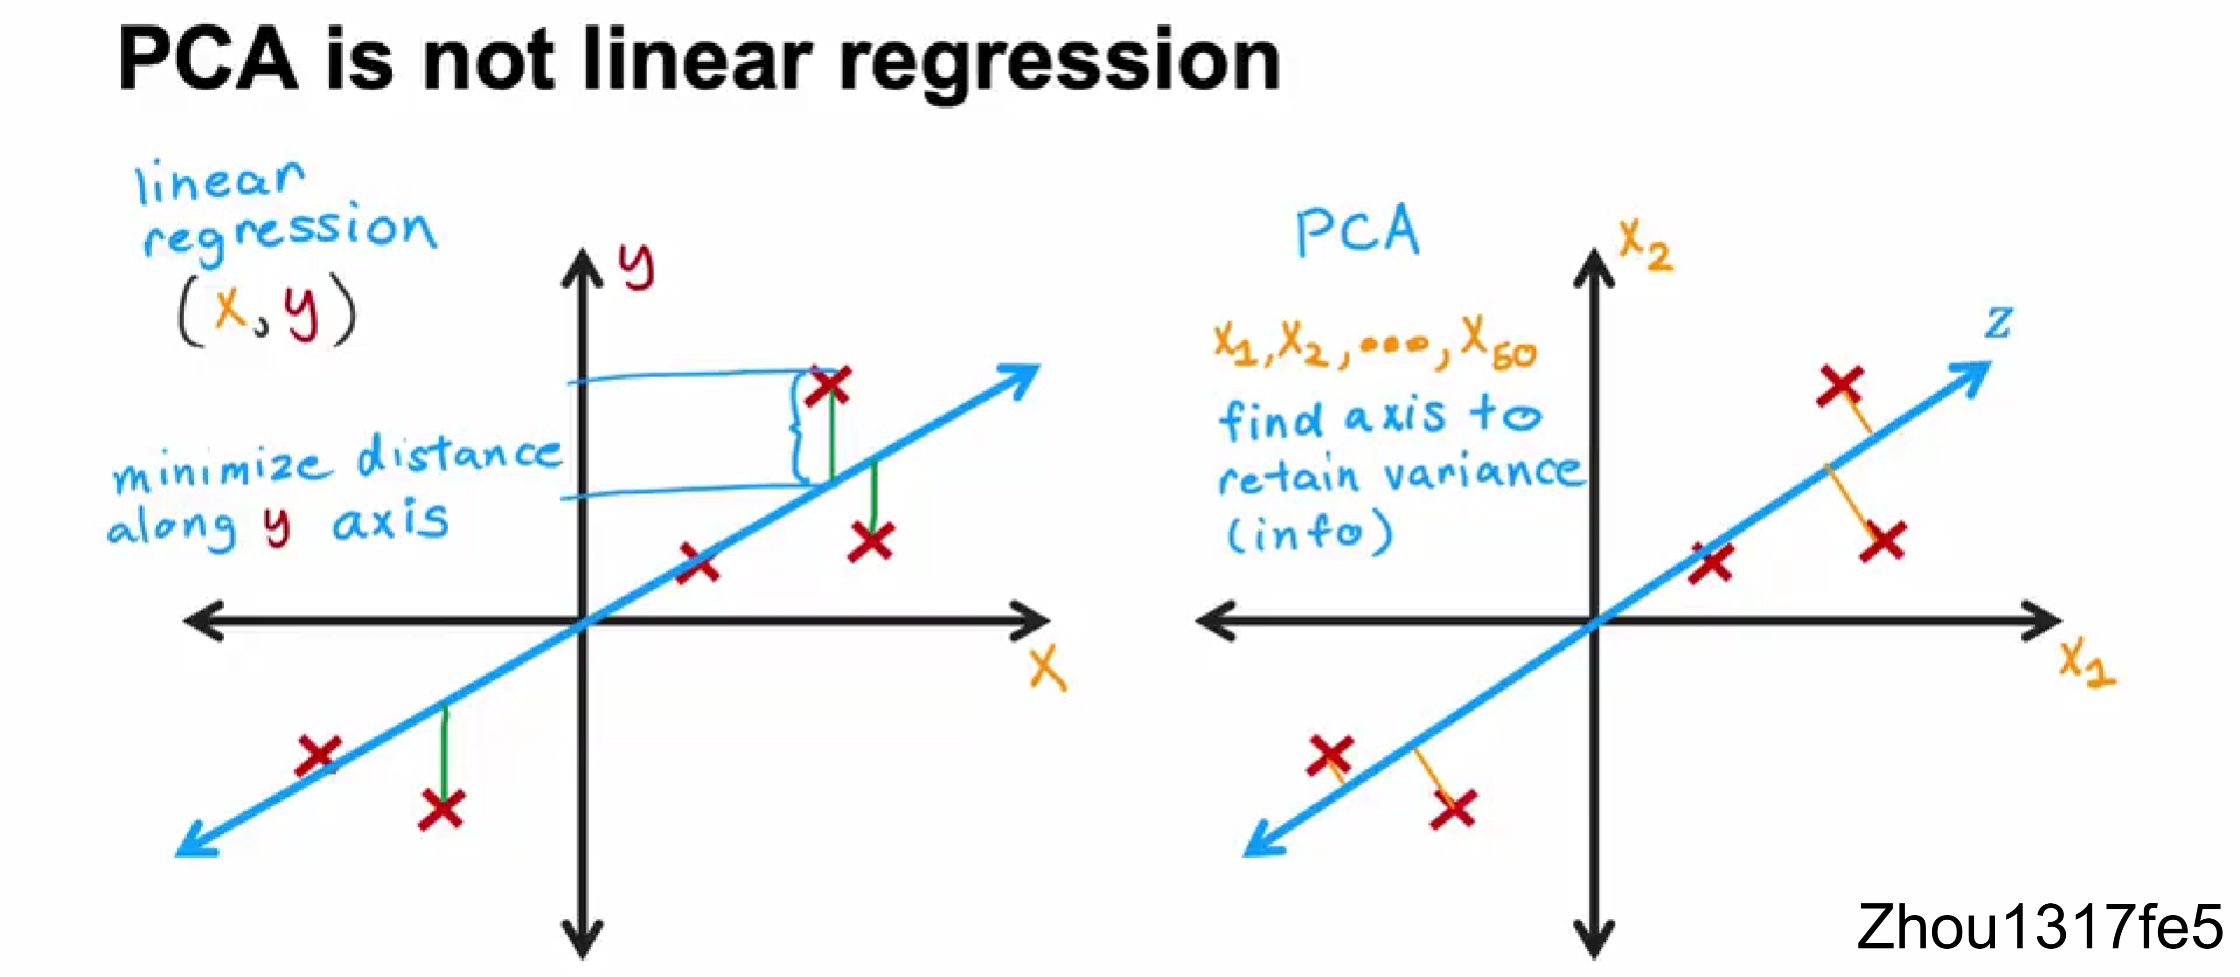 PCA is not linear regression
linear
regression
(x, y)
y
minimize distance
along y axis
x
PCA
x2
x1, x2, ..., x50
z
find axis to
retain variance
(info)
x1
Zhou1317fe5